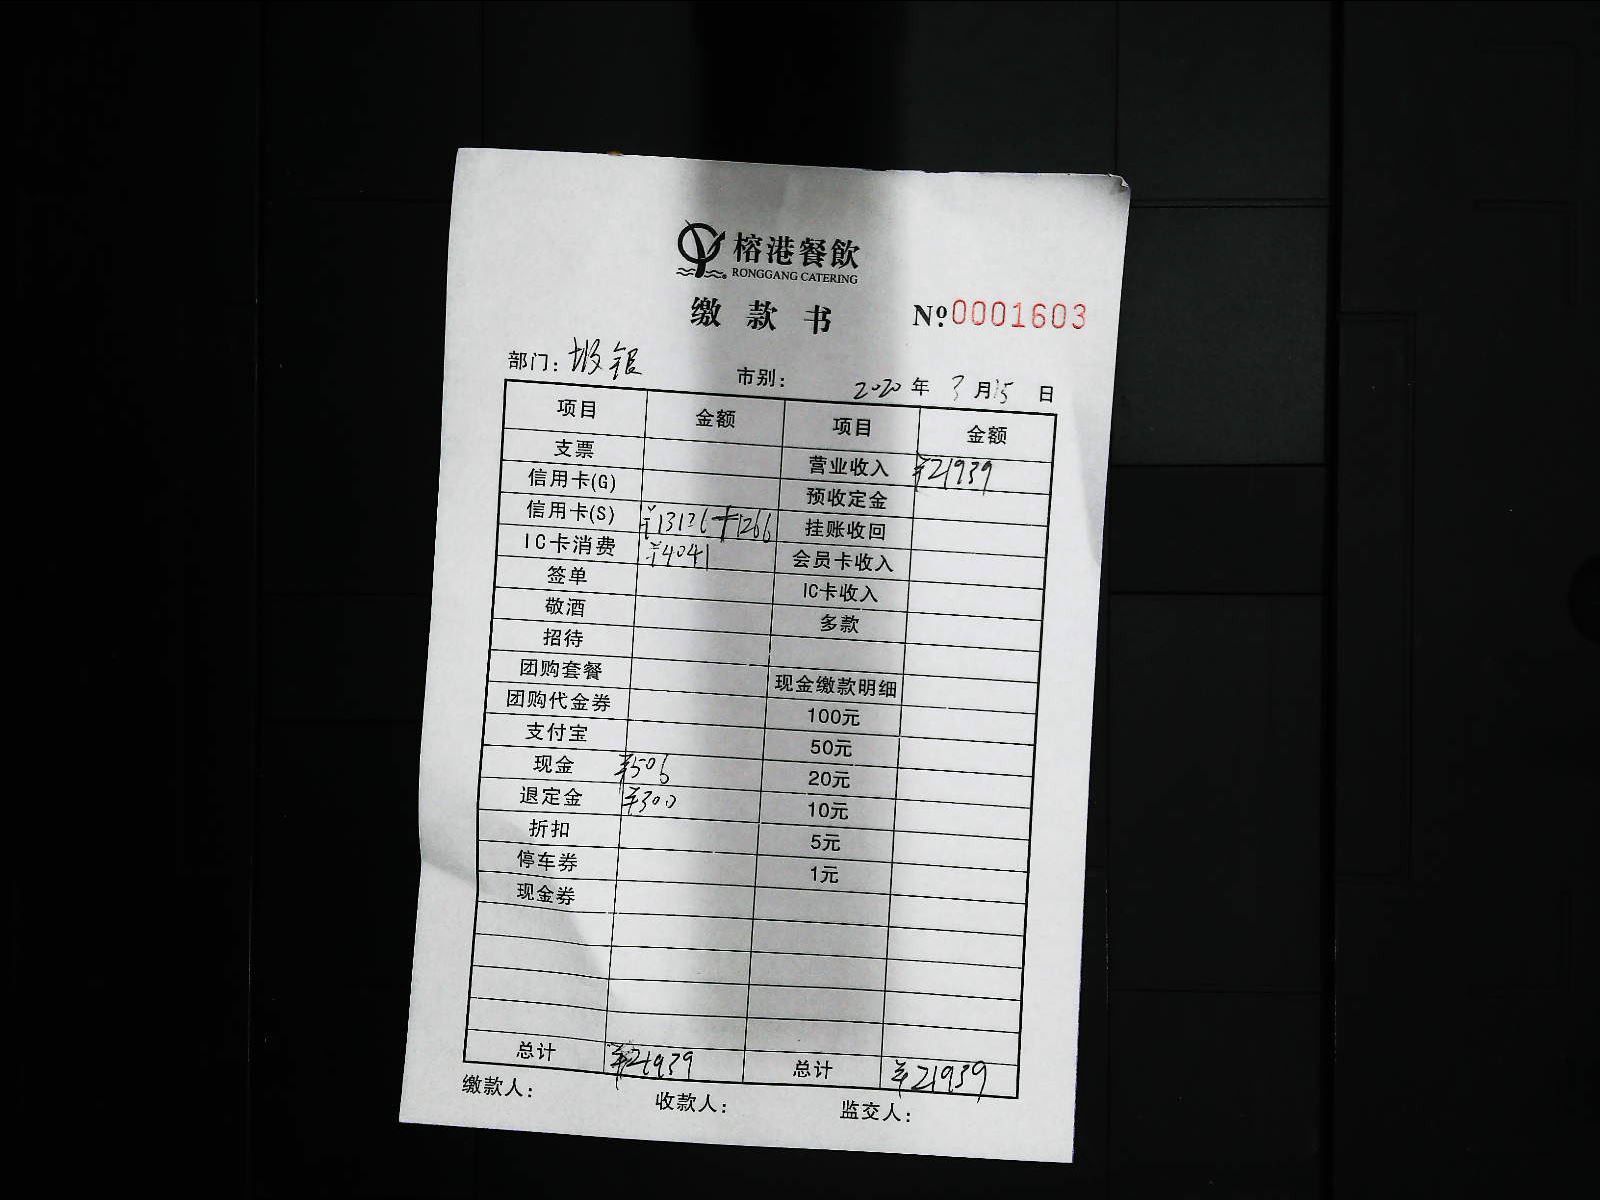 榕港餐飲
RONGGANG CATERING
缴款书 №0001603
部门: 市别: 2020年3月15日
项目 金额 项目 金额
支票 营业收入 ¥21939
信用卡(G) 预收定金
信用卡(S) 挂账收回
IC卡消费 ¥4041 会员卡收入
签单 IC卡收入
敬酒 多款
招待
团购套餐 现金缴款明细
团购代金券 100元
支付宝 50元
现金 ¥506 20元
退定金 ¥300 10元
折扣 5元
停车券 1元
现金券
总计 ¥21939 总计 ¥21939
缴款人: 收款人: 监交人: